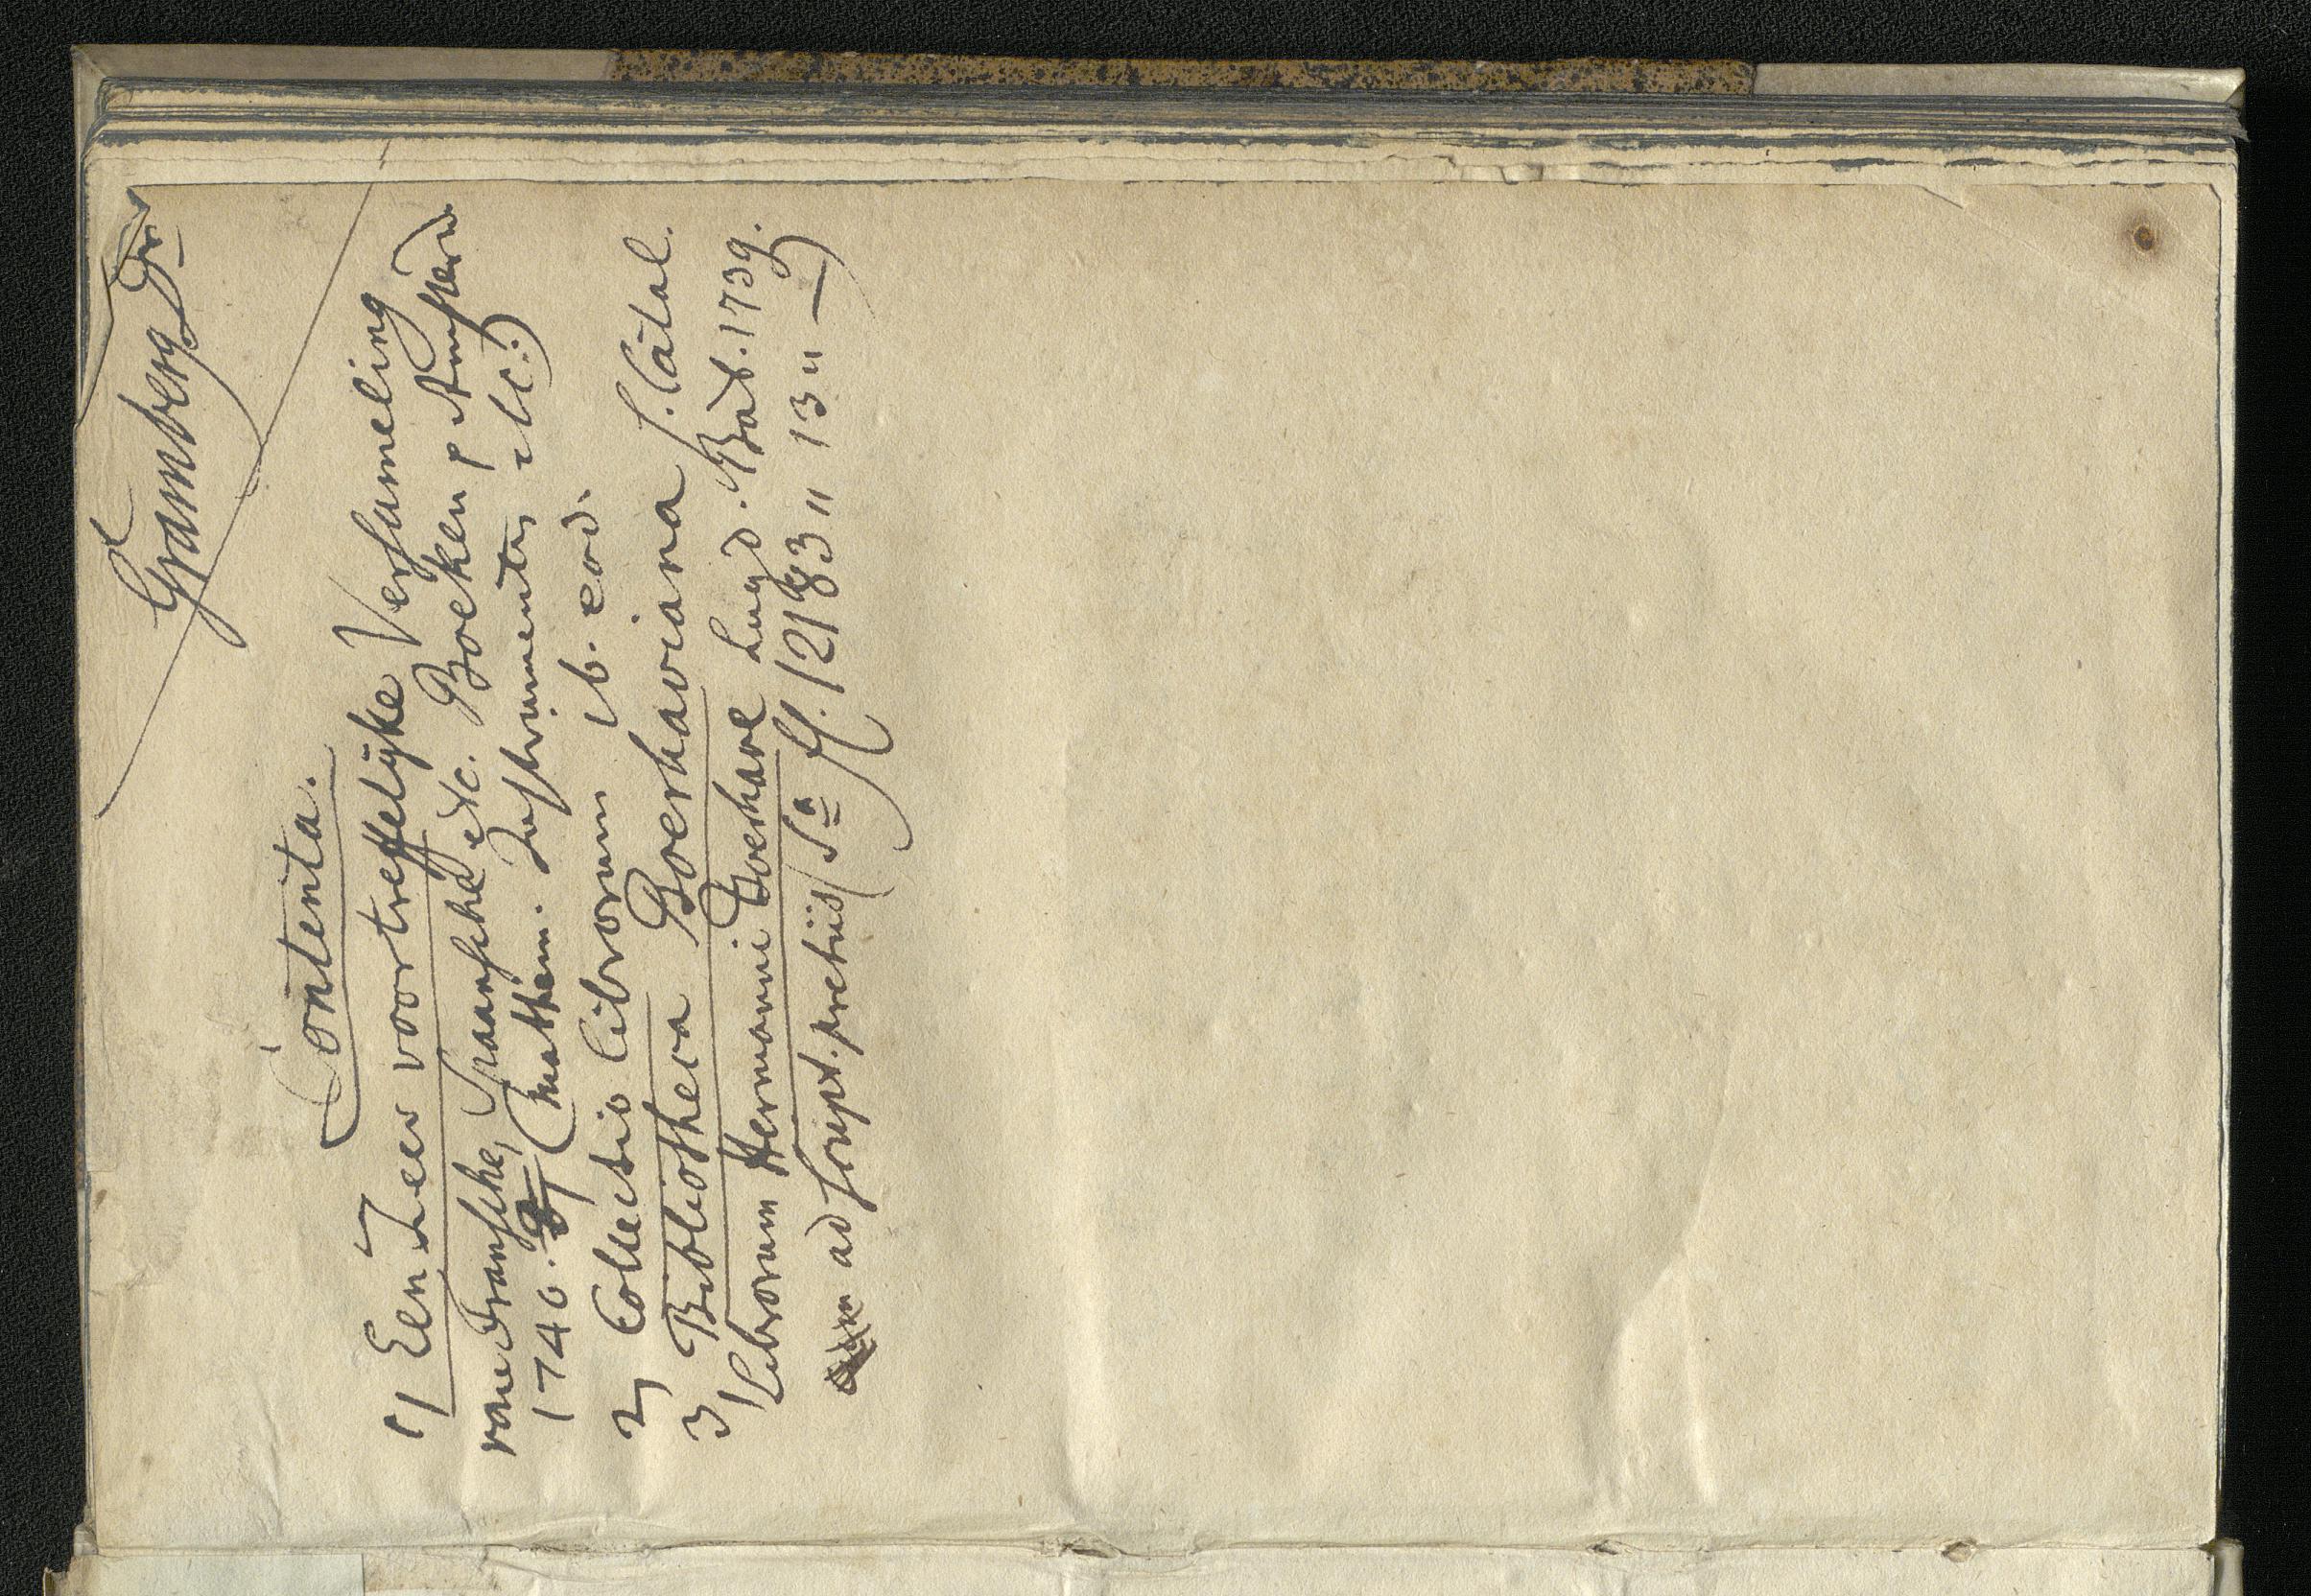 Gramberg Dr
Contenta.
1/ Een Zeer voortreffelijke Versameling
van Fransche, Spaansche etc. Boeken p Amsterd
1740. (Mathem. Instrumenten etc.)
2/ Collectio librorum ib. eod.
3/ Bibliotheca Boerhaviana s. Catal.
librorum Hermanni Boerhave Lugd. Bat. 1739.
ad script. pretiis (Sa fl. 12183 " 13 " —)